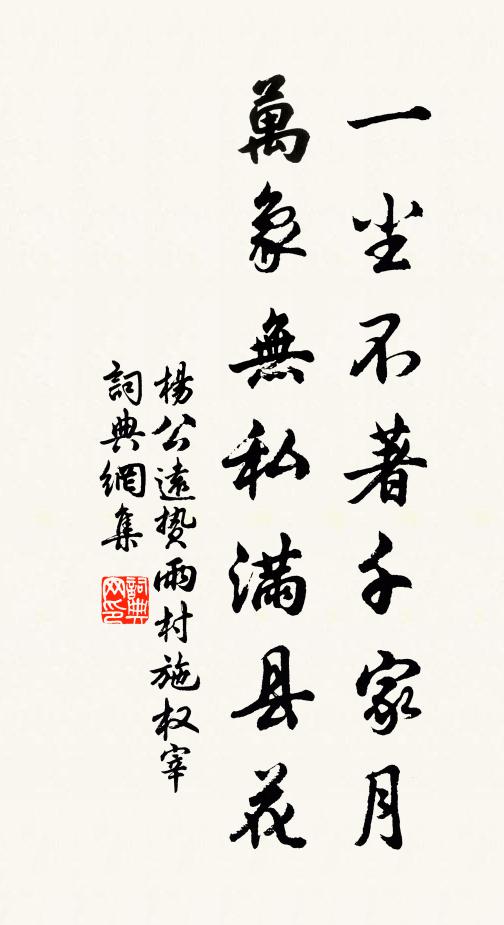 一尘不著千家月
萬象無私满县花
楊公遠贽雨村施权宰
詞典網集
詞典網印